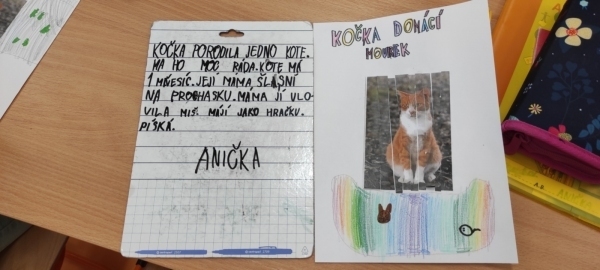 KOČKA PORODILA JEDNO KOTĚ.
MÁ HO MOC RÁDA. KOTĚ MÁ
1 MĚSÍC. JEJÍ MAMA ŠLA SNÍ
NA PROCHASKU. MAMA JÍ VLO-
VILA MIŠ. MÁJÍ JAKO HRAČKU.
PÍSKÁ.
ANIČKA
KOČKA DOMÁCÍ
MOUREK